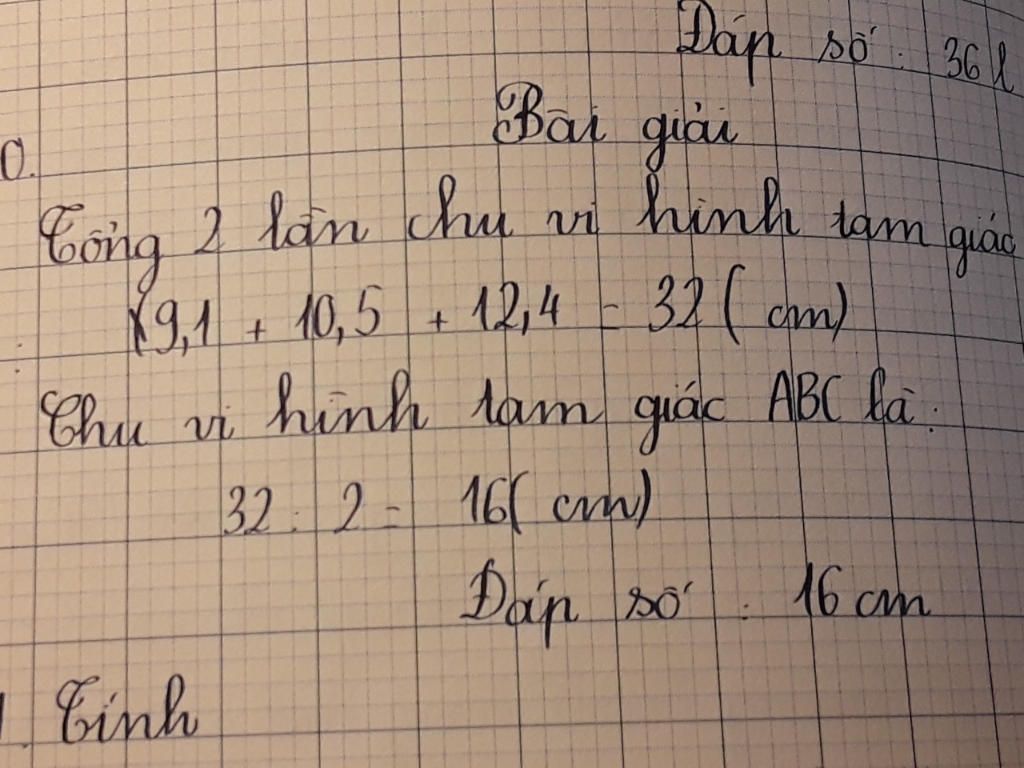 Đáp số : 36 l
Bài giải
0.
Tổng 2 lần chu vi hình tam giác
9,1 + 10,5 + 12,4 = 32 ( cm)
Chu vi hình tam giác ABC là :
32 : 2 = 16( cm)
Đáp số : 16 cm
. Tính